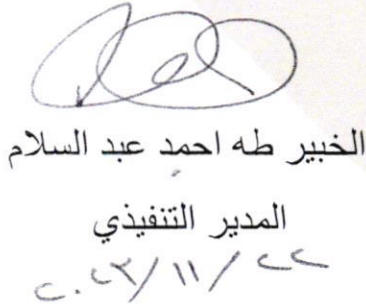 الخبير طه احمد عبد السلام
المدير التنفيذي
٢٠٢٣/١١/٢٢